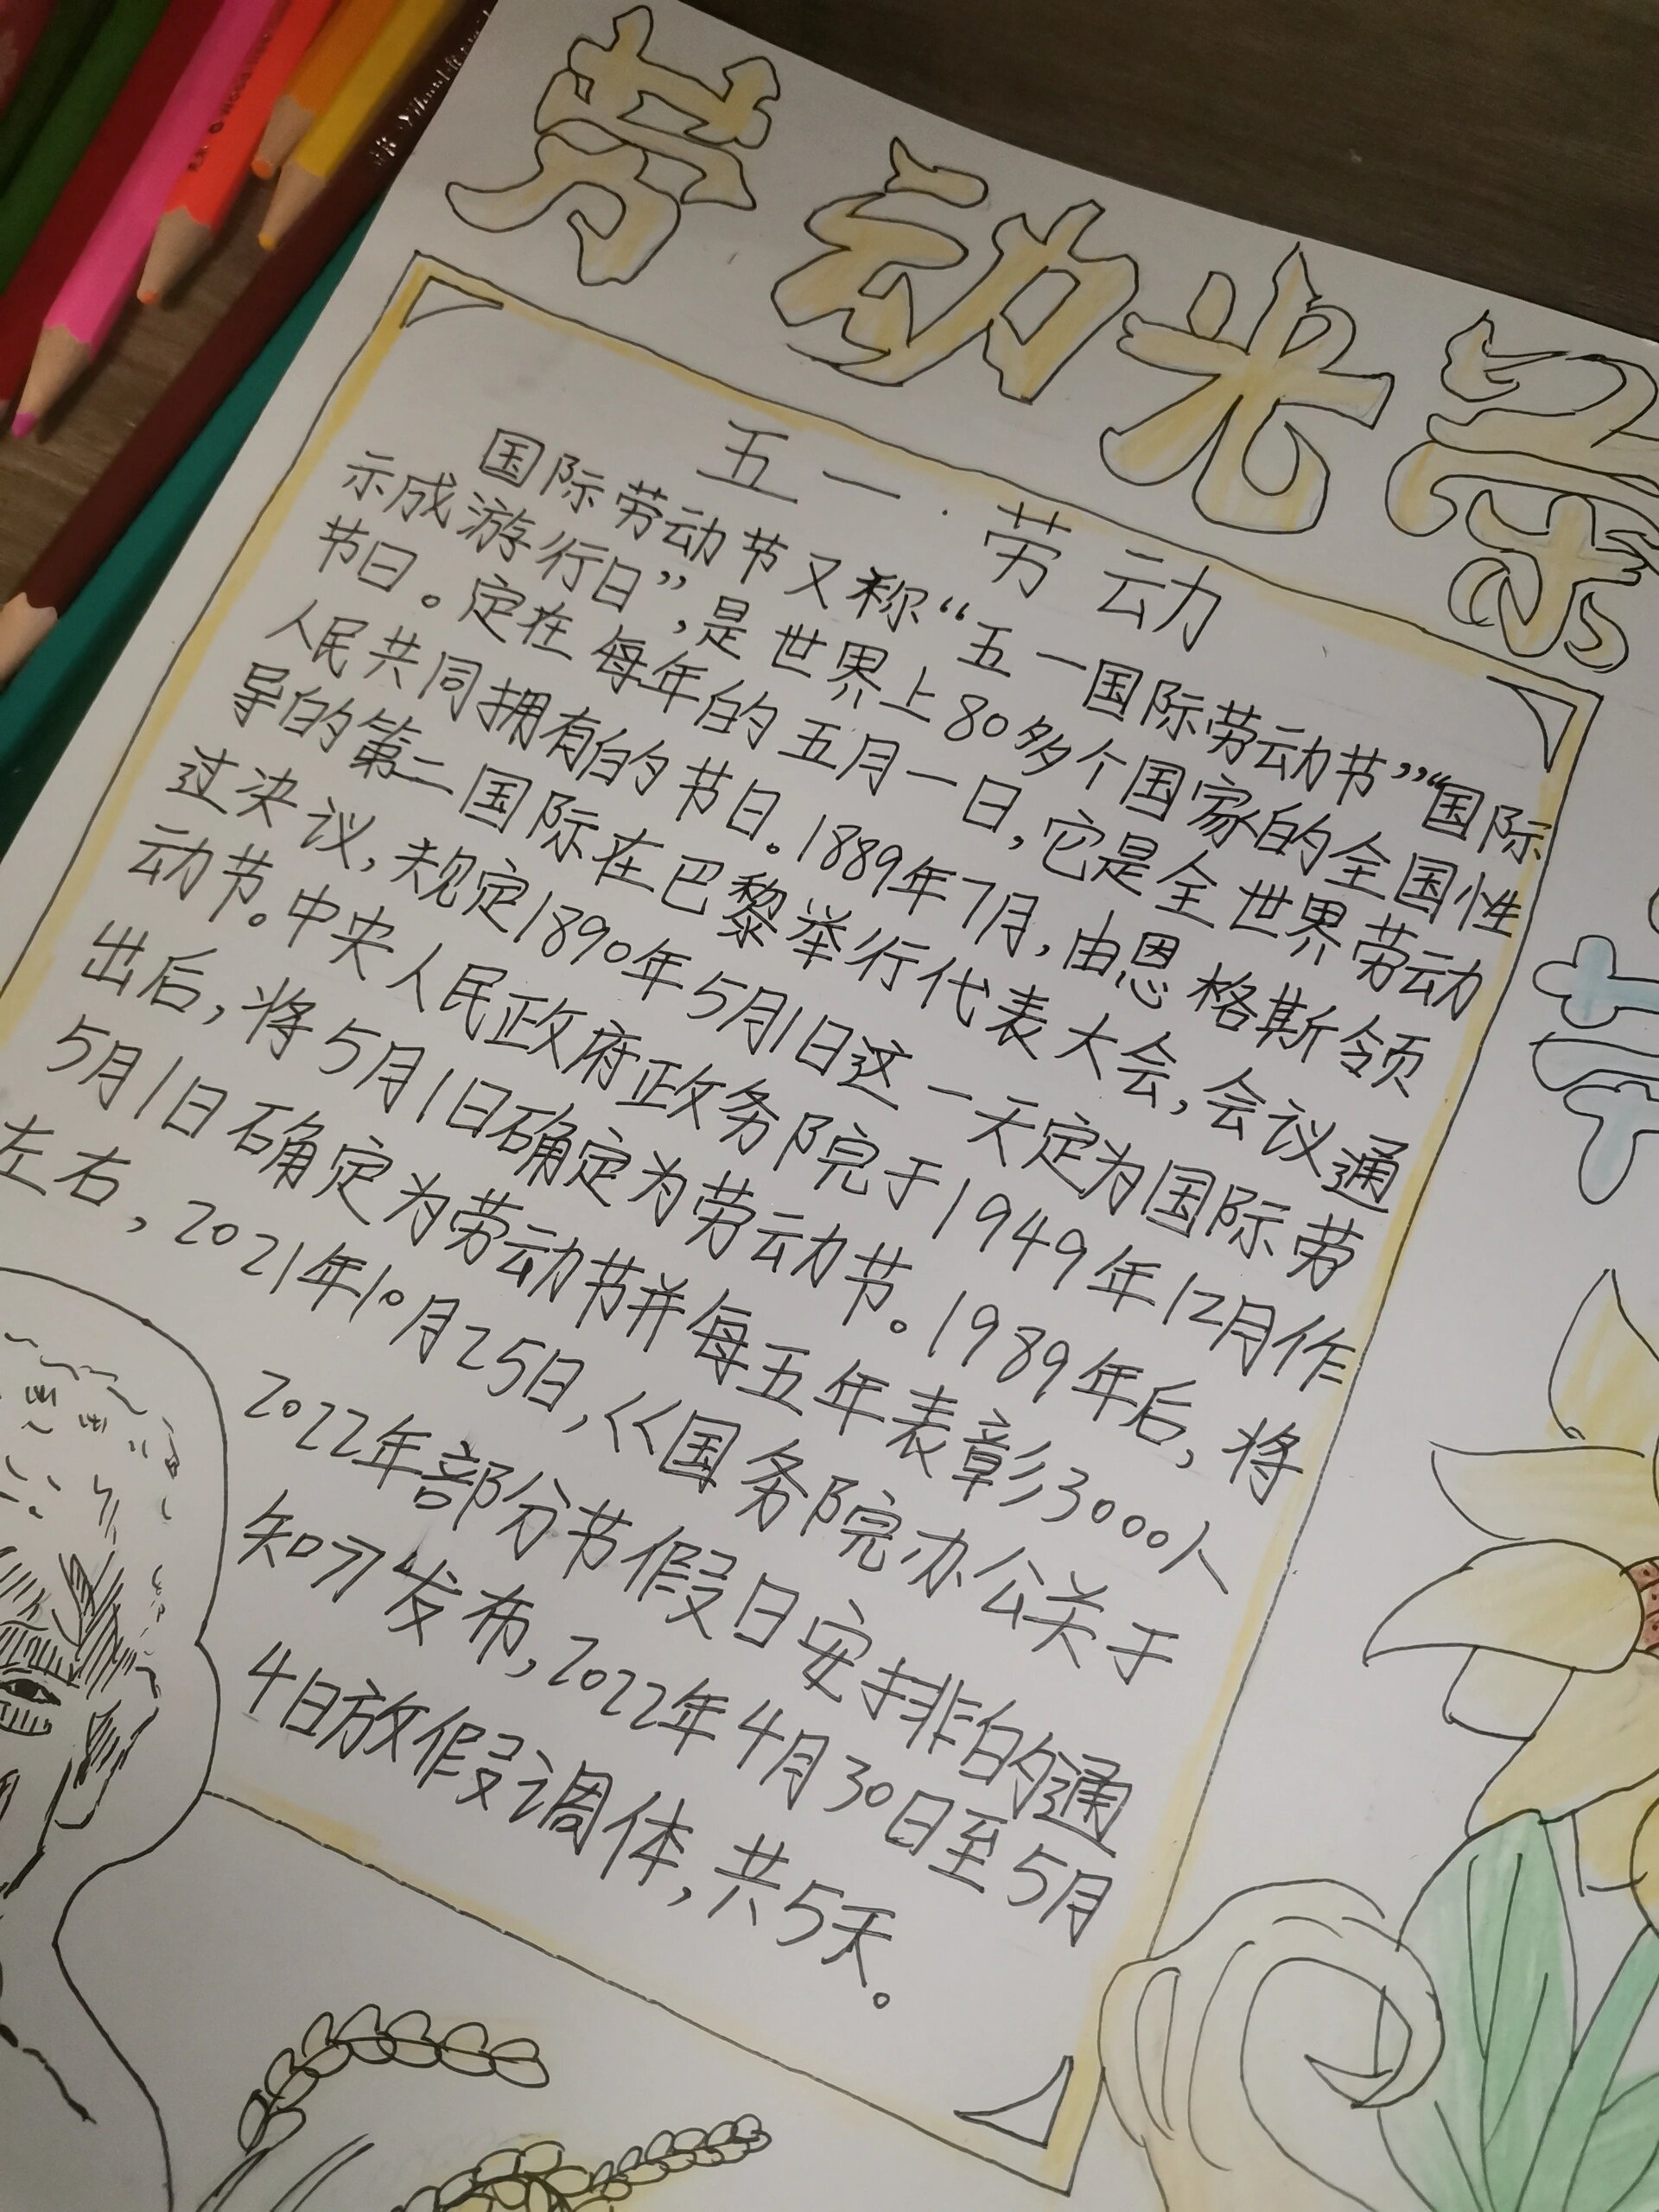 劳动光荣
五一·劳动
国际劳动节又称“五一国际劳动节”“国际
示成游行日”,是世界上80多个国家的全国性
节日。定在每年的五月一日,它是全世界劳动
人民共同拥有的节日。1889年7月,由恩格斯领
导的第二国际在巴黎举行代表大会,会议通
过决议,规定1890年5月1日这一天定为国际劳
动节。中央人民政府政务院于1949年12月作
出后,将5月1日确定为劳动节。1989年后,将
5月1日确定为劳动节并每五年表彰3000人
左右,2021年10月25日,《国务院办公关于
2022年部分节假日安排的通
知》发布,2022年4月30日至5月
4日放假调体,共5天。